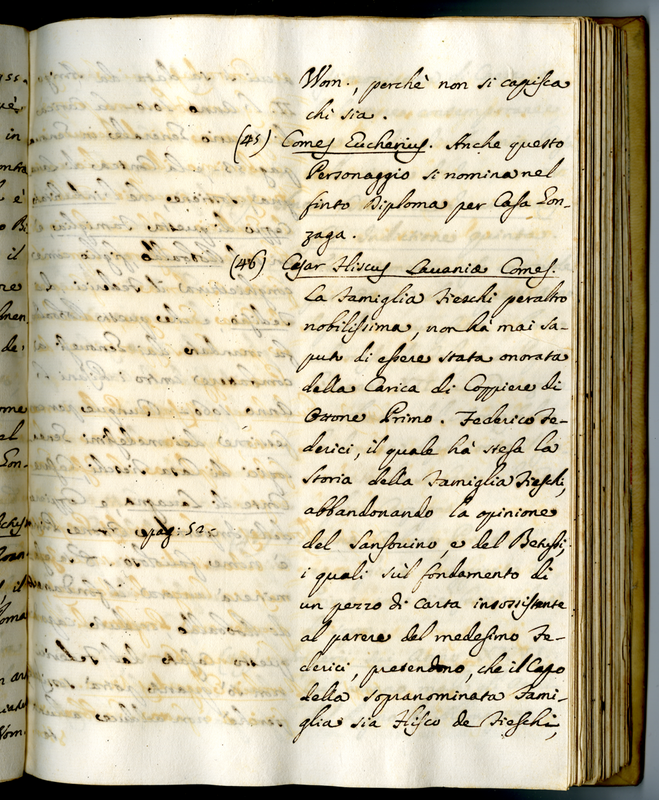 Wom., perchè non si capisca
chi sia.
(45) Comes Eucherius. Anche questo
Personaggio si nomina nel
finto Diploma per Casa Gon-
zaga.
(46) Cesar Fliscus Lavaniæ Comes.
La Famiglia Fieschi peraltro
nobilissima, non hà mai sa-
puto di essere stata onorata
della Carica di Coppiere di
Ottone Primo. Federico Fe-
derici, il quale hà stesa la
Storia della Famiglia Fieschi,
abbandonando la opinione
del Sansovino, e del Betussi,
pag: 52.
i quali sul fondamento di
un pezzo di carta insossistente
al parere del medesimo Fe-
derici, pretendono, che il Capo
della sopranominata Fami-
glia sia Flisco de Fieschi,